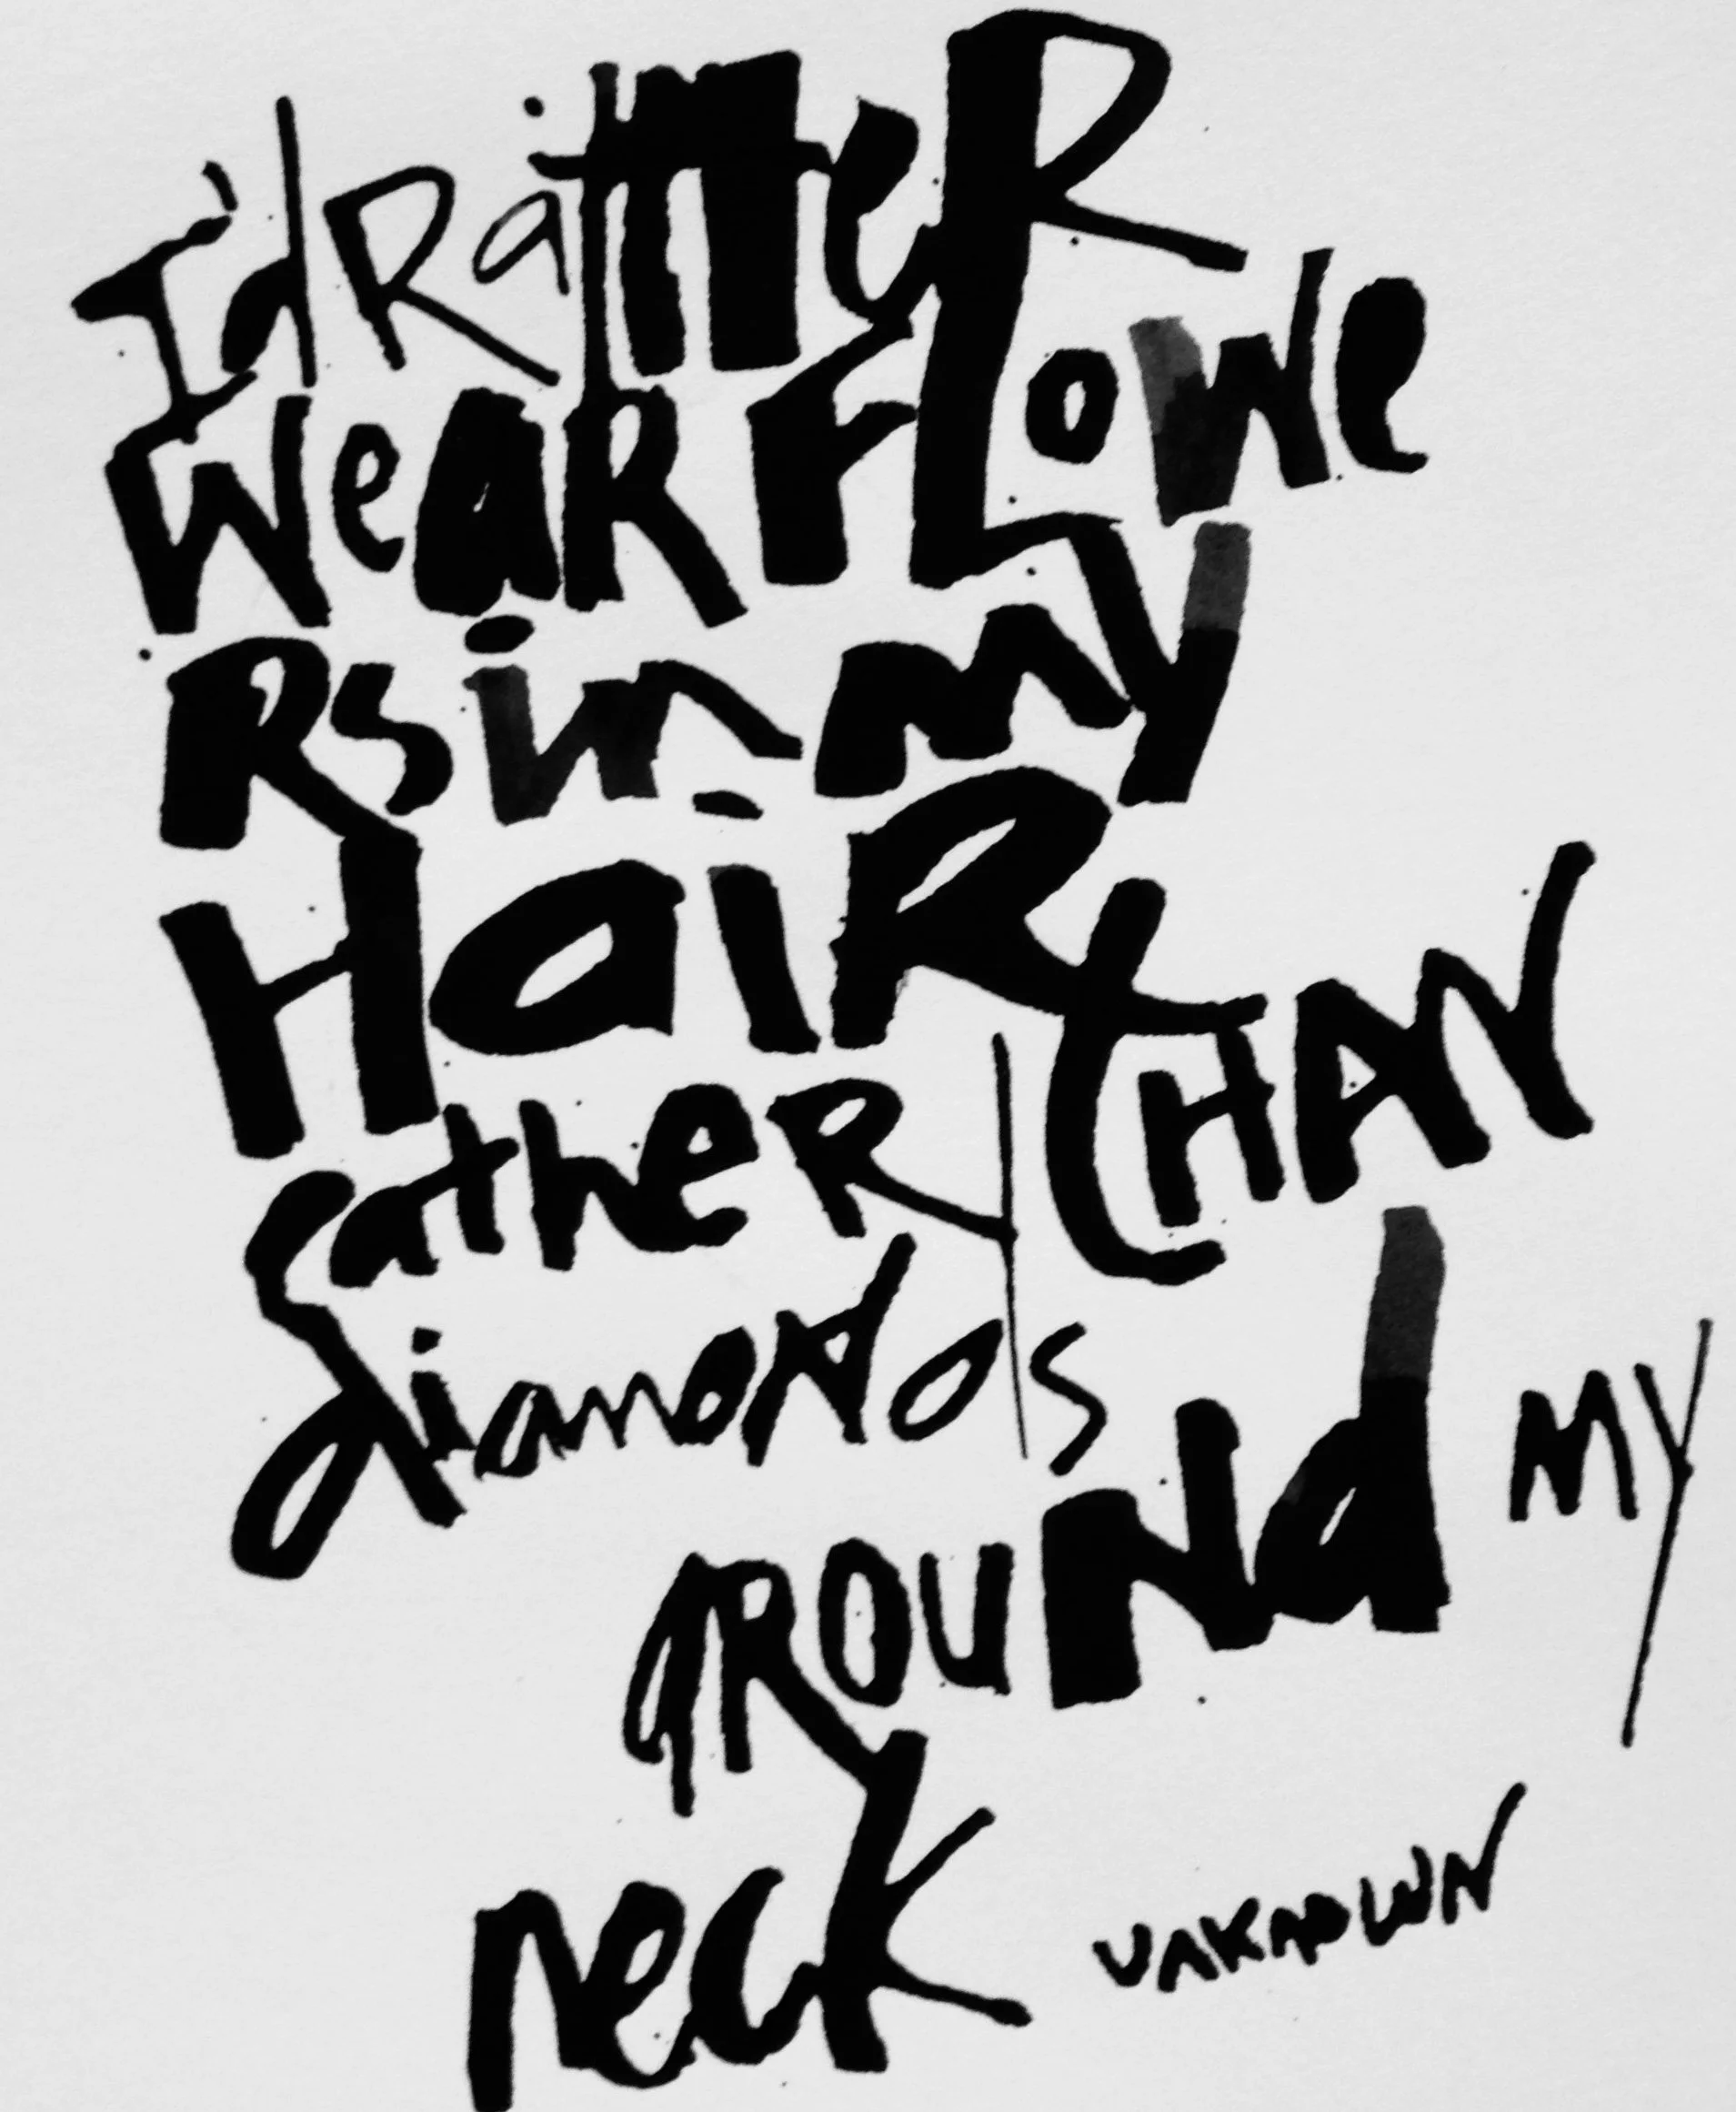 I'd RatHeR
weaR FLowe
Rs in my
HaiR
ratheR tHAN
diamoNds
aROUNd MY
neck UNKNOWN